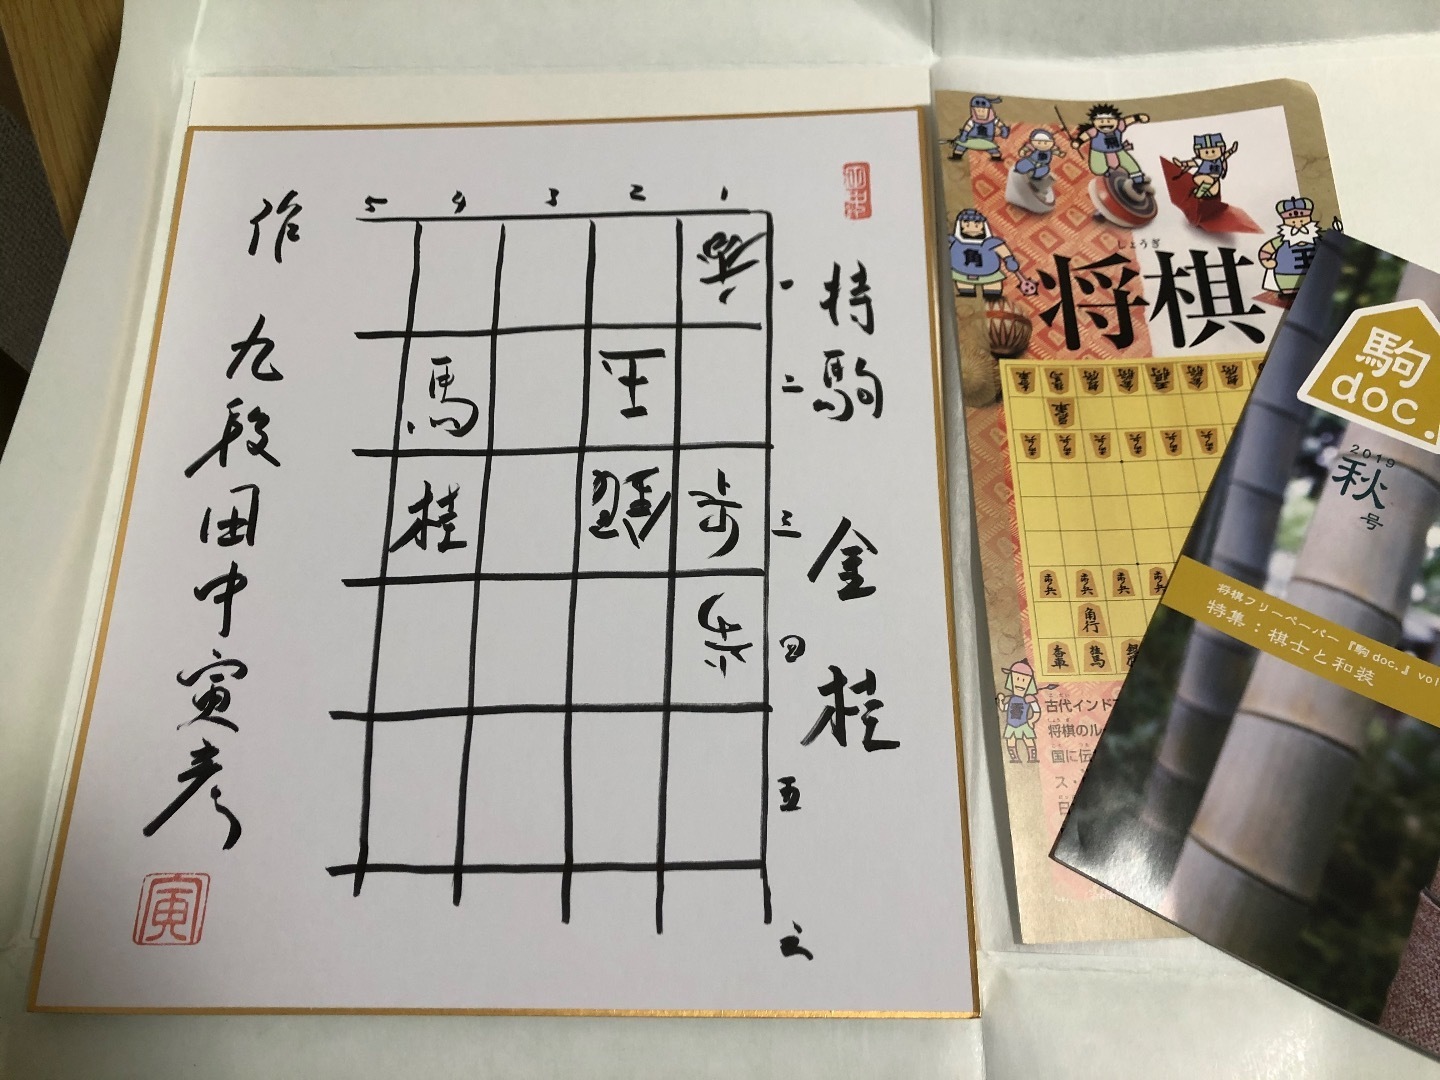 持駒 金 桂
5 4 3 2 1
一
二
三
四
五
六
香
馬 王
桂 歩
歩
作 九段 田中寅彦
寅
しょうぎ
将棋
角
王
香
角行
古代インド
将棋のル
国に伝
ス・
日
駒
doc.
2019
秋
号
将棋フリーペーパー『駒doc.』vol
特集：棋士と和装